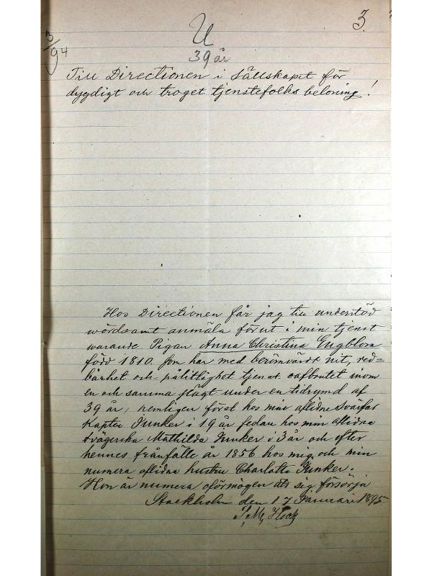 3.
3/94
U
39 år
Till Directionen i Sällskapet för
dygdigt och troget tjenstefolks belöning!
Hos Directionen får jag till understöd
wördsamt anmäla förut i min tjenst
warande Pigan Anna Christina Engblom
född 1810. Hon har med berömvärdt nit, red-
barhet och pålitlighet tjenat oafbrutet inom
en och samma slägt under en tidrymd af
39 år; nemligen först hos min aflidne Svärfar
Kapten Junker i 19 år sedan hos min aflidna
svägerska Mathilda Junker i 3 år och efter
hennes frånfälle år 1856 hos mig och min
numera aflidna hustru Charlotte Junker.
Hon är numera oförmögen att sig försörja
Stockholm den 17 Januari 1895